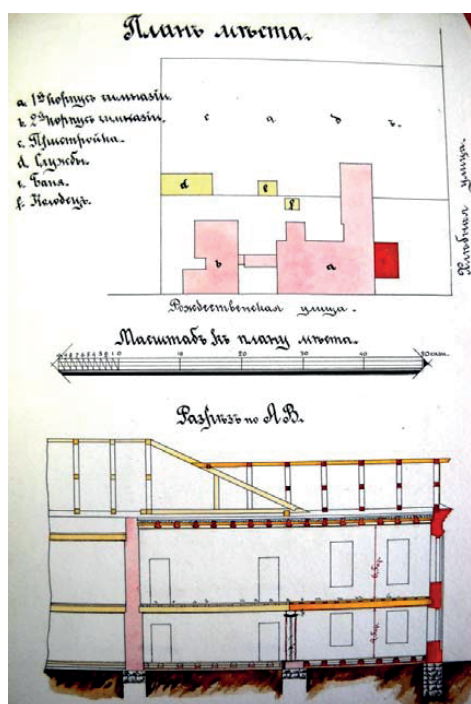 Планъ мѣста.
a. 1й корпусъ гимназiи.
b. 2й корпусъ гимназiи.
c. Пристройка.
d. Службы.
e. Баня.
f. Колодезь.
с а д ъ.
d
e
f
b
a
Хлѣбная улица.
Рождественская улица.
Масштабъ къ плану мѣста.
10 20 30 40 50 саж.
Разрѣзъ по АВ.